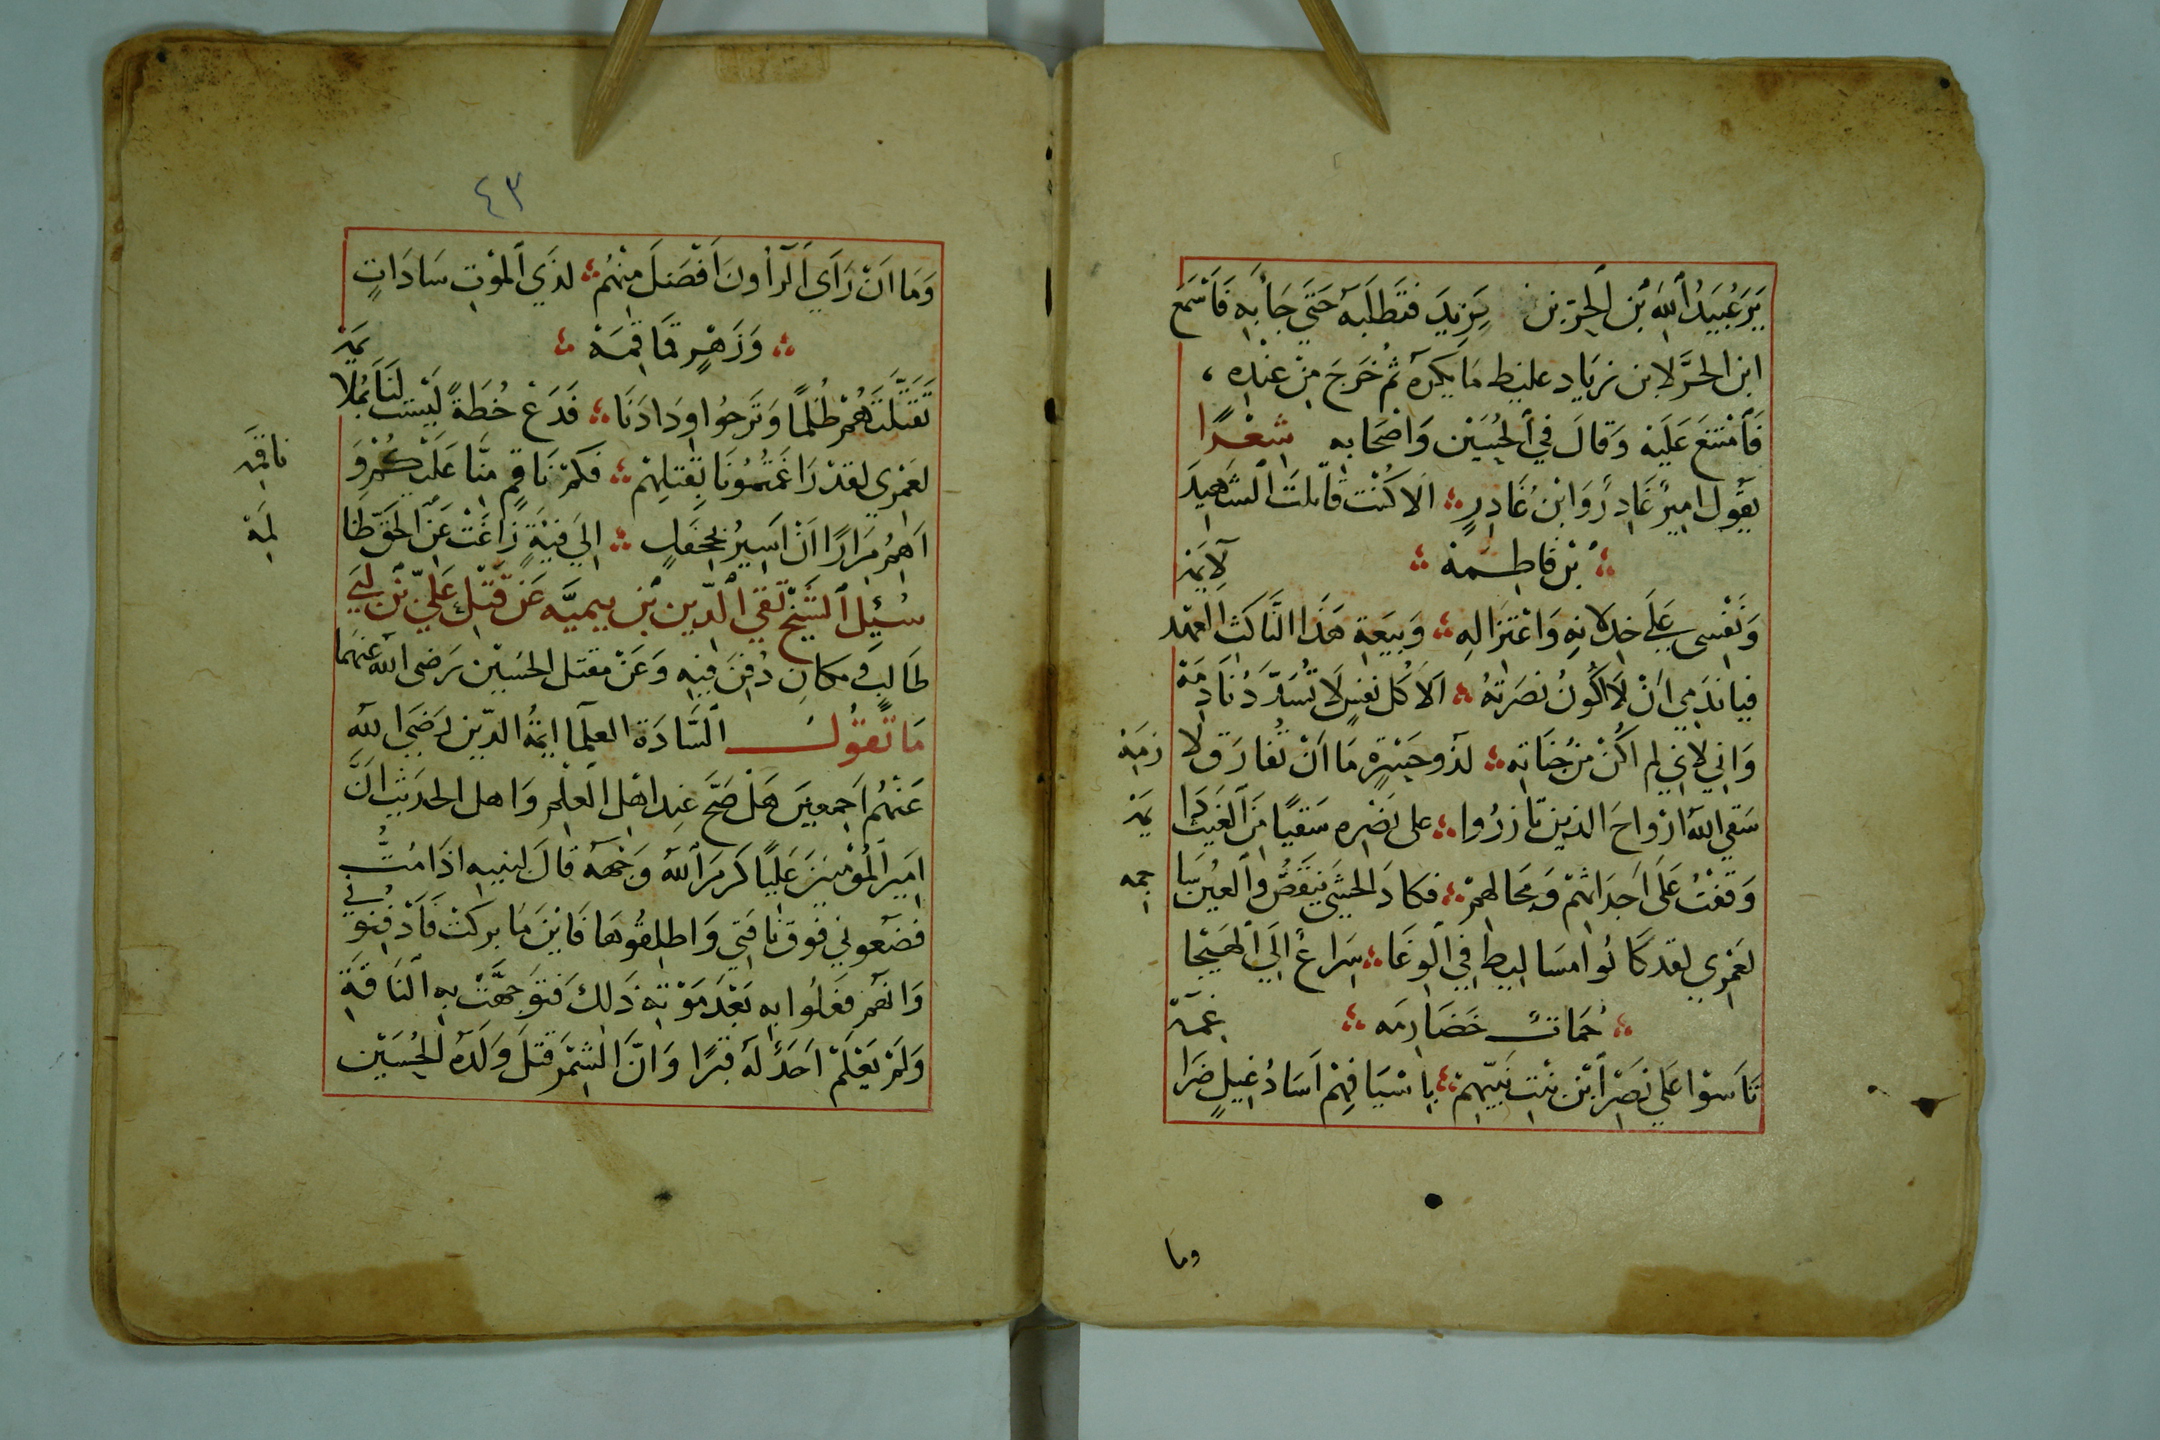 يَرَ عُبَيدُ اللهِ بْن الحِرّ بن يَزِيدَ فتَطَلَّبَهُ حَتَّي جَابِهِ فَاَسْمَعَ
ابن الحرَّ لابن زيَاد غليظ مَا يكره ثُمّ خَرَجَ مِنْ عنْدِهِ ،
فَاَمْتَنَعَ عَلَيْه وَقالَ في الحُسَيْن وَاصْحَابِهِ شِعْرًا
يقُول اميرٌ غَادِرٌ وَابْنُ غَادِرٍ الا كُنْتَ قاتلتَ الشهيدَ
بْن فاطمة
لايمَة
وَنَفْسى عَلَى خدلانِهِ وَاعْتزالِهِ وَبيَعَةِ هَذَا النَّاكثِ العَهْدَ
فيا ندَمِي اَنْ لَا اكُونُ نصَرتهُ اَلَا كُل نفسٍ لَا تُسَدّدُ نادِمَة
وَانِي لاني لم اكُنْ مِنْ حُمَاتِهِ لذو حَسْرَةٍ مَا اَنْ تُفارَق لا
زمَة
سَقي اللهُ ارْواحَ الذين تآزرُوا على نصْرِه سَقيًا مِنَ الغَيثِ دَا
يمَة
وَقفْتُ عَلَى اَجدَاثهمْ وَمحَالهمْ فكادَ الحَشَى يَنقَضُّ والعيُن سَا
جمه
لعَمْري لقد كَانُوا مسَاليط فِي الوغَا سِرَاعٌ اِلَي الهَيْجا
حُمَاتٌ خَضَارِمَه
تَاَسَوْا عَلي نَصْرِ ابْن بنْت نَبيّهِمْ باَسْيَافِهِمْ آسَادُ غِيلٍ ضَرَا
غمَة
وما
٤٣
وَمَا اَنْ رَاَي الرآؤنَ اَفْضَلَ مِنْهُمُ لدَي الموْتِ سَادَاتٍ
وَزَهْرٍ قَمَاقِمَة
تَقَتِّلَهُمْ ظُلمًا وَتَرجُوا ودَادَنَا فَدَعْ خُطَةً ليْسَت لَنَا بمُلا
يمَة
لعَمْري لقدْ رَاغمْتمُونَا بقَتلِهِمْ فَكمْ نَاقِمٍ مِنَّا عَلَيْكُمْ وَ
ناقمَه
اَهِمُّ مِرَارًا اَنْ اَسِيرُ بجحْفلٍ اِلَي فئةٍ زَاغَتْ عَنِ الحَقّ ظا
لمَة
سُئِل الشَّيْخ تقي الدّين بْن تيميَّه عَنْ قتْلِ عَلِيّ بْن اَبي
طَالبٍ وَمكانِ دُفِنَ فيهِ وَعَنْ مقتل الحُسَيْن رَضى الله عَنْهُمَا
مَا تَقُولُ السَّادَة العلمآ ايمّةُ الدّين رَضَيَ اللهُ
عَنْهُم اَجمعينَ هَلْ صَحَّ عِند اهْل العِلْمِ وَاهل الحدَيثِ اَنَّ
امِيرَ المُؤمنينَ عَليًا كرمَ اللهُ وَجْهَهُ قالَ لبنيهِ اذَا مُتُّ
فضعُوني فَوقَ نَاقتِي وَاطلِقُوهَا فَاَيْنَ مَا بركَتْ فَاَدْفِنُونِي
وَانهُمْ فعَلُوا بهِ بَعْدَ مَوْتِهِ ذَلِكَ فتوَجهَّتْ بهِ الناقَةَ
وَلَمْ يَعْلَمْ اَحَدٌ لَهُ قبْرًا وَانَّ الشِمْرَ قتلَ وَلَدَهُ الحُسَيْن